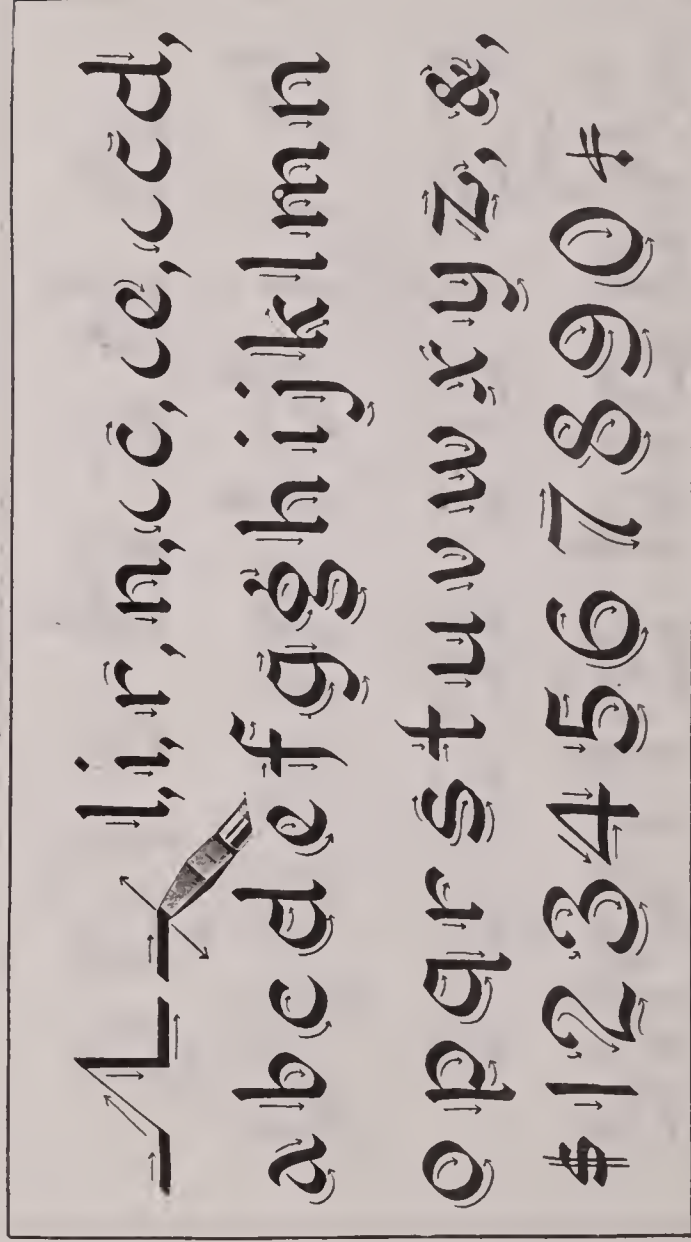 l,i,r,n,cc,ce,ccd,
abcdefgghijklmn
opqrstuvwxyz,&,
$1234567890